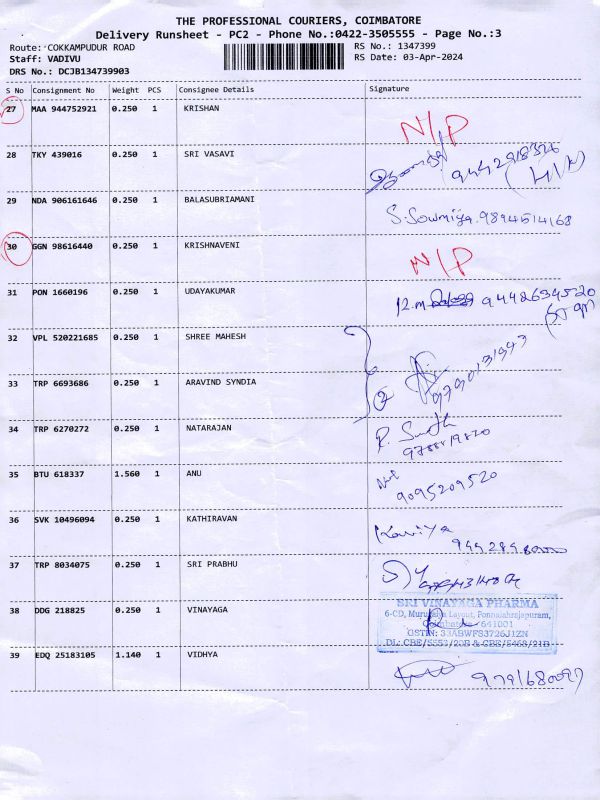 THE PROFESSIONAL COURIERS, COIMBATORE
Delivery Runsheet - PC2 - Phone No.:0422-3505555 - Page No.:3
Route: COKKAMPUDUR ROAD RS No.: 1347399
Staff: VADIVU RS Date: 03-Apr-2024
DRS No.: DCJB134739903
S No Consignment No Weight PCS Consignee Details Signature
27 MAA 944752921 0.250 1 KRISHAN N/P
28 TKY 439016 0.250 1 SRI VASAVI
29 NDA 906161646 0.250 1 BALASUBRIAMANI S.Sowmiya.9894514168
30 GGN 98616440 0.250 1 KRISHNAVENI N/P
31 PON 1660196 0.250 1 UDAYAKUMAR 9448634520
32 VPL 520221685 0.250 1 SHREE MAHESH
33 TRP 6693686 0.250 1 ARAVIND SYNDIA
34 TRP 6270272 0.250 1 NATARAJAN
35 BTU 618337 1.560 1 ANU 9095209520
36 SVK 10496094 0.250 1 KATHIRAVAN Kaviya
37 TRP 8034075 0.250 1 SRI PRABHU
38 DDG 218825 0.250 1 VINAYAGA
SRI VINAYAGA PHARMA
6-CD, Layout, Ponnaiahrajapuram,
Coimbatore 641001
GSTIN: 33ABWFS3726J1ZN
DL: CBE/5552/20B & CBE/5468/21B
39 EDQ 25183105 1.140 1 VIDHYA